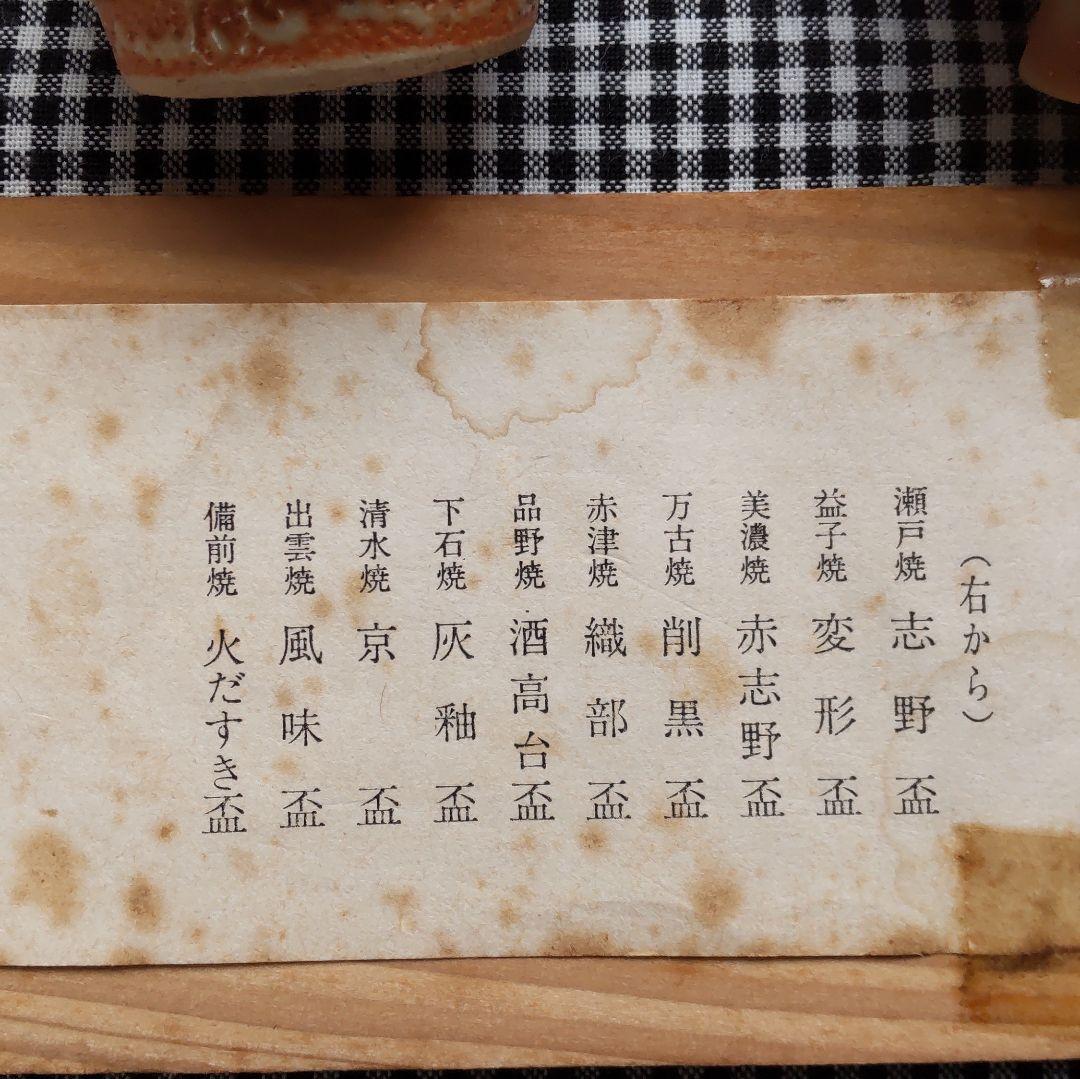 （右から）
瀬戸焼 志野盃
益子焼 変形盃
美濃焼 赤志野盃
万古焼 削黒盃
赤津焼 織部盃
品野焼 酒高台盃
下石焼 灰釉盃
清水焼 京盃
出雲焼 風味盃
備前焼 火だすき盃